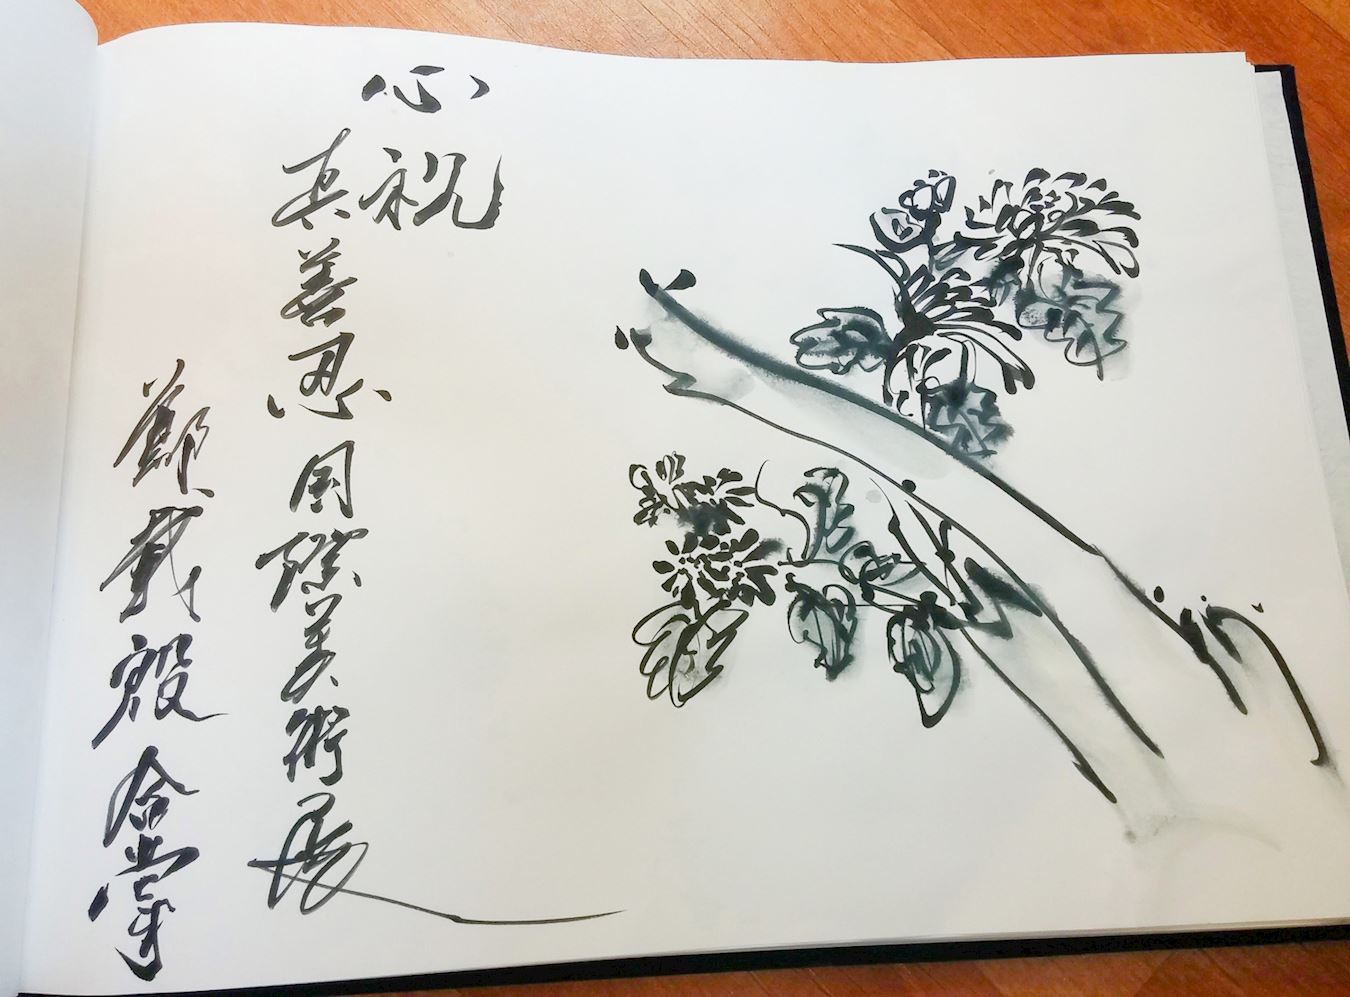 心祝
真善忍国際美術展
鄭載殷合掌